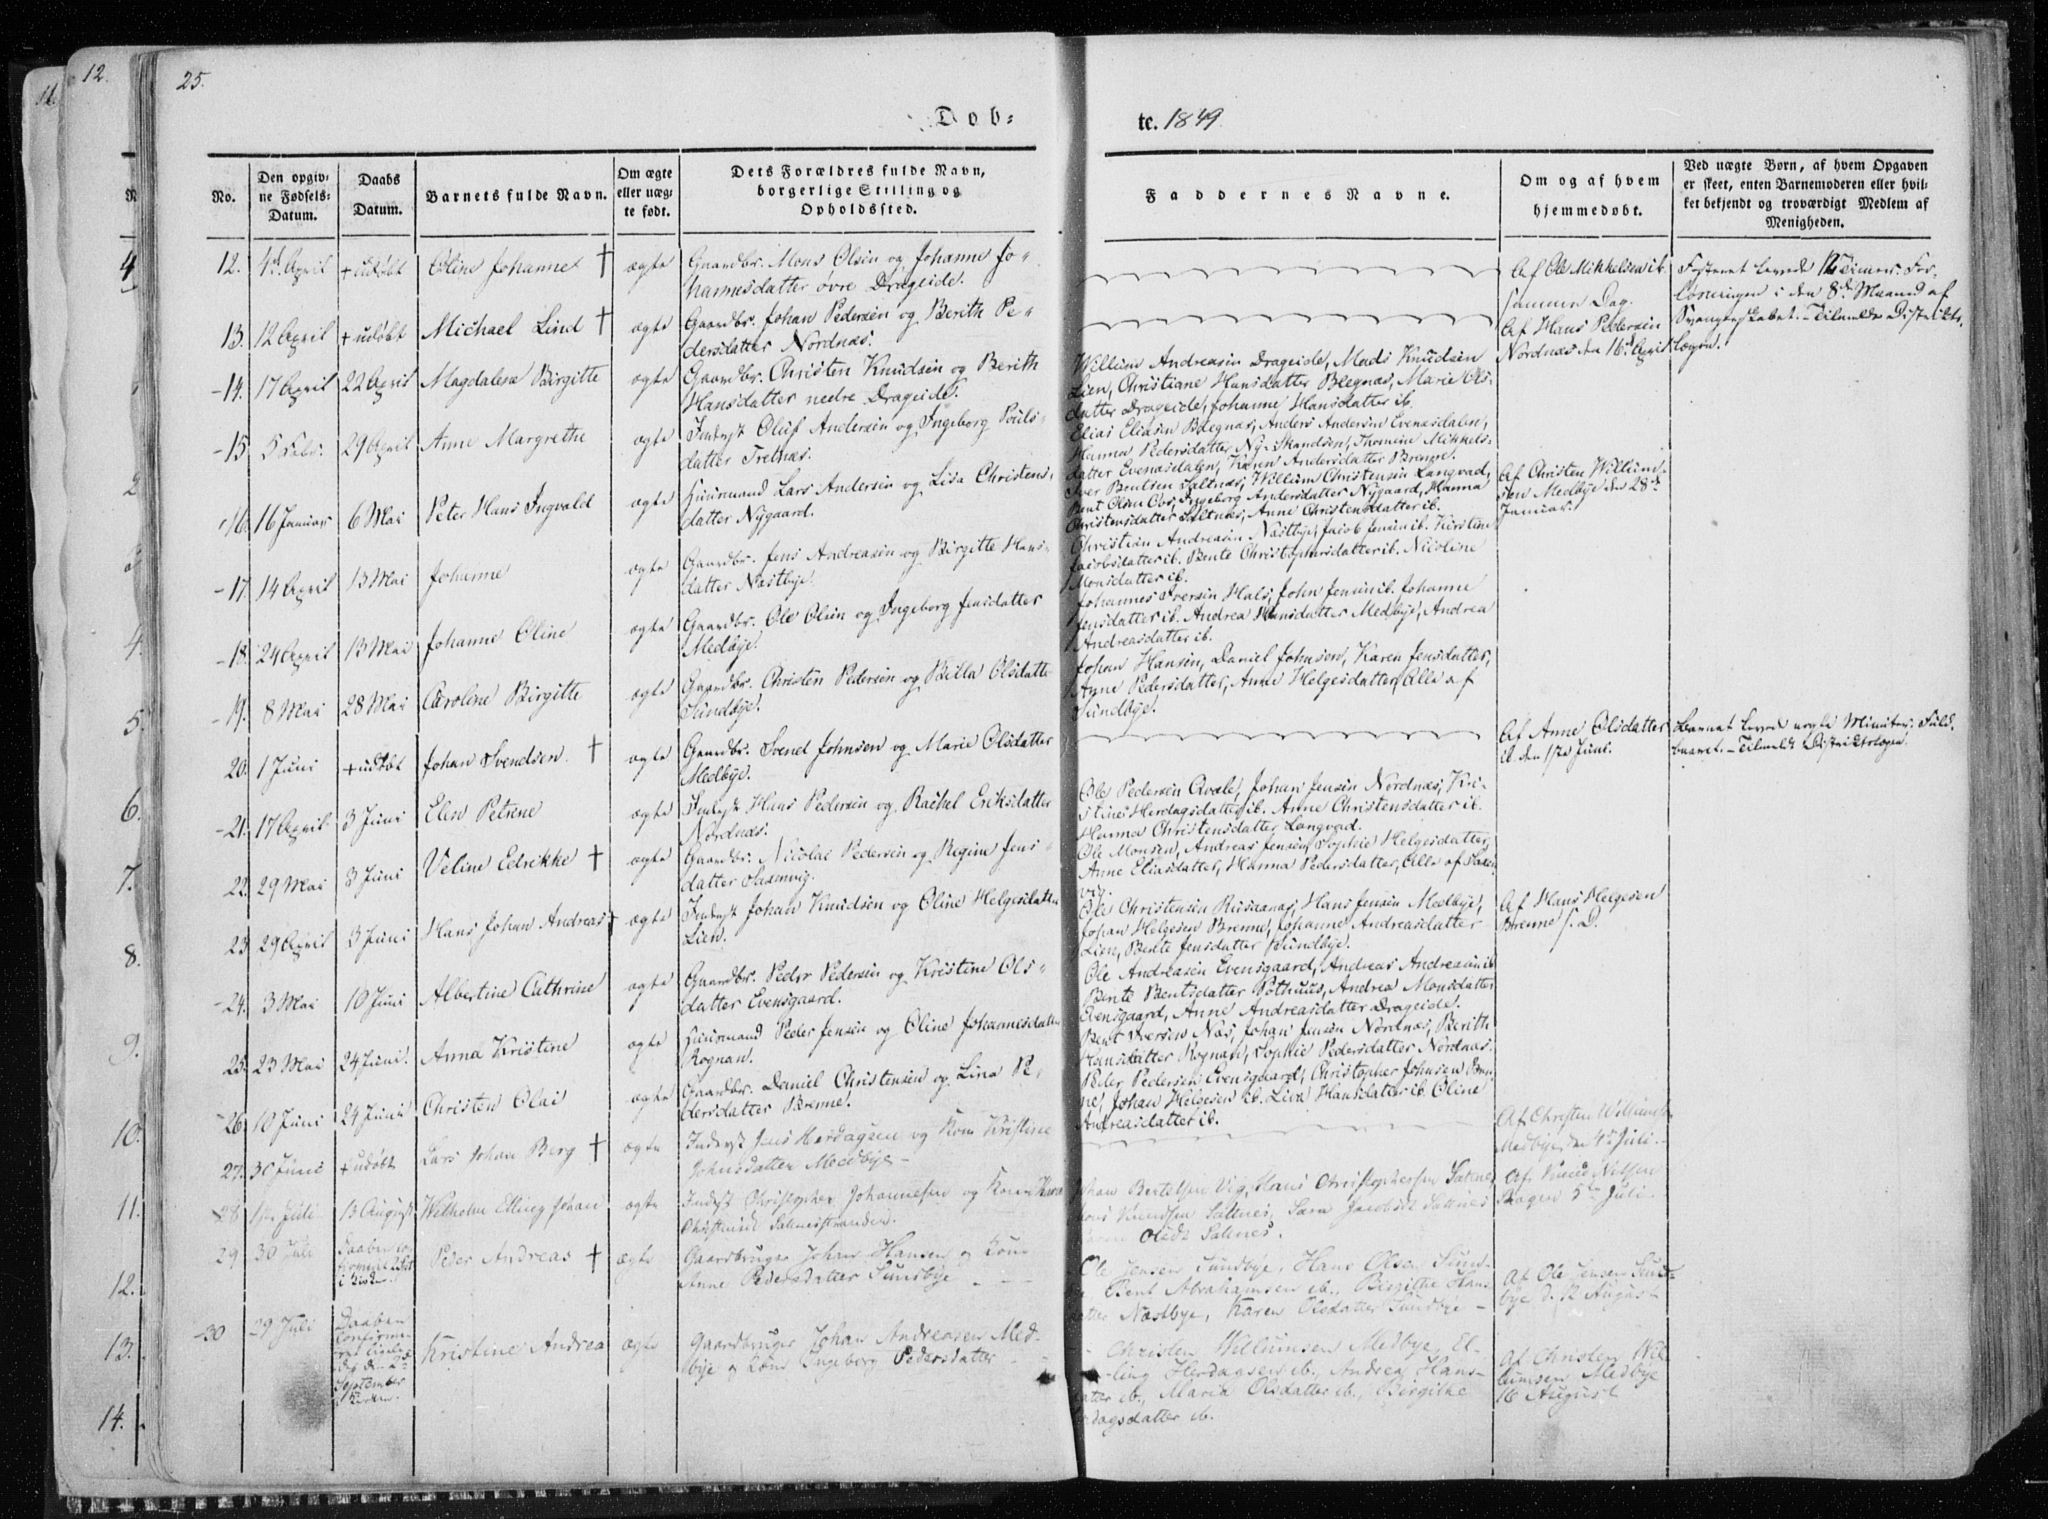 25.
12.
11.
Døb=
te. 1849.
No.
Den opgiv-
ne Fødsels-
Datum.
Daabs
Datum.
Barnets fulde Navn.
Om ægte
eller uæg-
te født.
Dets Forældres fulde Navn,
borgerlige Stilling og
Opholdssted.
Faddernes Navne.
Om og af hvem
hjemmedøbt.
Ved uægte Børn, af hvem Opgaven
er skeet, enten Barnemoderen eller hvil-
ket bekjendt og troværdigt Medlem af
Menigheden.
12. 4de April + udøbt Oline Johanne † ægte Gaardbr. Mons Olsen og Johanne Jo-
hannesdatter øvre Drageide.
Af Ole Mikkelsen ib.
samme Dag.
Fosteret levede 12 Timer. For-
løsningen i den 8de Maaned af
Svangerskabet. - Tilmeldt Distrikts-
lægen.
13. 12 April + udøbt Michael Lind † ægte Gaardbr. Johan Pedersen og Berith Pe-
dersdatter Nordnæs.
Af Hans Pedersen
Nordnæs den 16de April
14. 17 April 22 April Magdalena Birgitte ægte Gaardbr. Christen Knudsen og Berith
Hansdatter nedre Drageide.
Willum Andreasen Drageide, Mads Knudsen
Lien, Christiane Hansdatter Blegnæs, Marie Ols-
datter Drageide, Johanne Hansdatter ib.
15. 5 Febr. 29 April Anne Margrethe ægte Inderst Oluf Andersen og Ingeborg Pouls-
datter Tretnæs.
Elias Eliasen Blegnæs, Anders Andersen Evenesdalen,
Hanna Pedersdatter Ny-Skandsen, Thomine Mikkels-
datter Evenæsdalen, Karen Andersdatter Brenne.
16. 16 Januar 6 Mai Peter Hans Ingvald ægte Huusmand Lars Andersen og Lisa Christens-
datter Nygaard.
Iver Bentsen Saltnæs, Willum Christensen Langvad,
Bent Olsen Øos, Ingeborg Andersdatter Nygaard, Hanna
Christensdatter Saltnæs, Anne Christensdatter ib.
Af Christen Willum-
sen Medbye den 28de
Januar.
17. 14 April 13 Mai Johanne ægte Gaardbr. Jens Andreasen og Birgitte Hans-
datter Næstbye.
Christian Andreasen Næstbye, Jacob Jensen ib. Kirstine
Jacobsdatter ib. Bente Christophersdatter ib. Nicoline
Monsdatter ib.
18. 24 April 13 Mai Johanne Oline ægte Gaardbr. Ole Olsen og Ingeborg Jensdatter
Medbye.
Johannes Iversen Hals, John Jensen ib. Johanne
Jensdatter ib. Andrea Hansdatter Medbye, Andrea
Andreasdatter ib.
19. 8 Mai 28 Mai Caroline Birgitte ægte Gaardbr. Christen Pedersen og Bella Olsdatter
Sundbye.
Johan Hansen, Daniel Johnsen, Karen Jensdatter,
Anne Pedersdatter, Anne Helgesdatter, Alle af
Sundbye.
20. 1 Juni + udøbt Johan Svendsen. † ægte Gaardbr. Svend Johnsen og Marie Olsdatter
Medbye.
Af Anne Olsdatter
ib. den 1ste Juni.
Barnet levede nogle Minuter. Fuld-
baaret. - Tilmeldt Distriktslægen.
21. 17 April. 3 Juni Elen Petrine ægte Inderst Hans Pedersen og Rachel Eriksdatter
Nordnæs.
Ole Pedersen Qvale, Johan Jensen Nordnæs, Kri-
stine Herdagsdatter ib. Anne Christensdatter ib.
Hanna Christensdatter Langvad.
22. 29 Mai 3 Juni Veline Edrikke † ægte Gaardbr. Nicolai Pedersen og Regine Jens-
datter Saxenvig.
Ole Monsen, Andreas Jensen, Sophie Helgesdatter,
Anne Eliasdatter, Hanna Pedersdatter, Alle af Saxen-
vig.
23. 29 April 3 Juni Hans Johan Andreas † ægte Inderst Johan Knudsen og Oline Helgesdatter
Lien.
Ole Christensen Rusaanæs, Hans Jensen Medbye,
Johan Helgesen Brenne, Johanne Andreasdatter
Lien, Bente Jensdatter Sundbye.
Af Hans Helgesen
Brenne s. D.
24. 3 Mai 10 Juni Albertine Cathrine ægte Gaardbr. Peder Pedersen og Kristine Ols-
datter Evensgaard.
Ole Andreasen Evensgaard, Andreas Andreasen ib.
Bente Bentsdatter Pothuus, Andrea Monsdatter
Evensgaard, Anne Andreasdatter Drageide.
25. 23 Mai 24 Juni. Anna Kristine ægte Huusmand Peder Jensen og Oline Johannesdatter
Rognan.
Bent Iversen Næs, Johan Jensen Nordnæs, Berith
Hansdatter Rognan, Sophie Pedersdatter Nordnæs.
26. 10 Juni 24 Juni Christen Olai ægte Gaardbr. Daniel Christensen og Lina Pe-
dersdatter Brenne.
Peder Pedersen Evensgaard, Christopher Johnsen Bren-
ne, Johan Helgesen ib. Lisa Hansdatter ib. Oline
Andreasdatter ib.
27. 30 Juni + udøbt Lars Johan Berg † ægte Inderst Jens Herdagsen og Kone Kristine
Johnsdatter Medbye -
Af Christen Willumsen
Medbye, den 4de Juli. -
28 1ste Juli 13 August Wilhelm Elling Johan ægte Inderst Christopher Johannesen og Kone Karen
Christensd.
Johan Bertelsen Vig, Hans Christophersen Saltnes,
Knudsen Saltnes, Sara Jacobsd. Saltnes
Olsdr. Saltnes.
Af Knud Nilsen
5te Juli -
29 30 Juli
i Kirken. Peder Andreas † ægte Gaardbruger Johan Hansen og Kone
Anne Pedersdatter Sundbye - - -
Ole Jensen Sundbye, Hans Olsen Sund-
Bent Abrahamsen ib., Birgithe Hans
Næstbye, Karen Olsdatter Sundbye -
Af Ole Jensen Sund-
bye d. 12 August
30 29 Juli Daaben
confirme-
September
i Kirken. Kristine Andrea ægte Gaardbruger Johan Andreasen Med-
bye og Kone Ingeborg Pedersdatter
Christen Willumsen Medbye, El-
ling Herdagsen ib., Andrea Hans-
datter ib., Maria Olsdatter ib., Birgithe
dagsdatter ib.
Af Christen Wil-
lumsen Medbye
16 August
4
2
4.
5.
6.
7.
8.
9.
10.
11.
12.
13.
14.